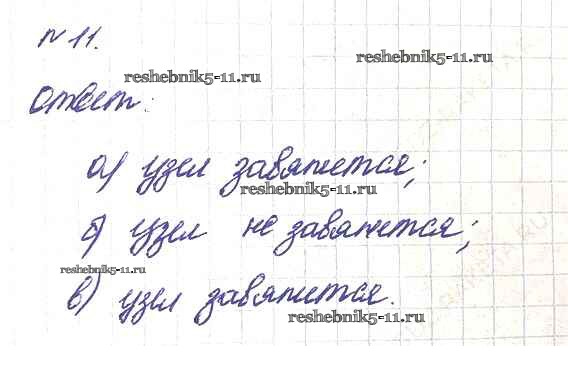 №11.
reshebnik5-11.ru
reshebnik5-11.ru
Ответ:
а) узел завяжется;
reshebnik5-11.ru
б) узел не завяжется;
reshebnik5-11.ru
в) узел завяжется.
reshebnik5-11.ru